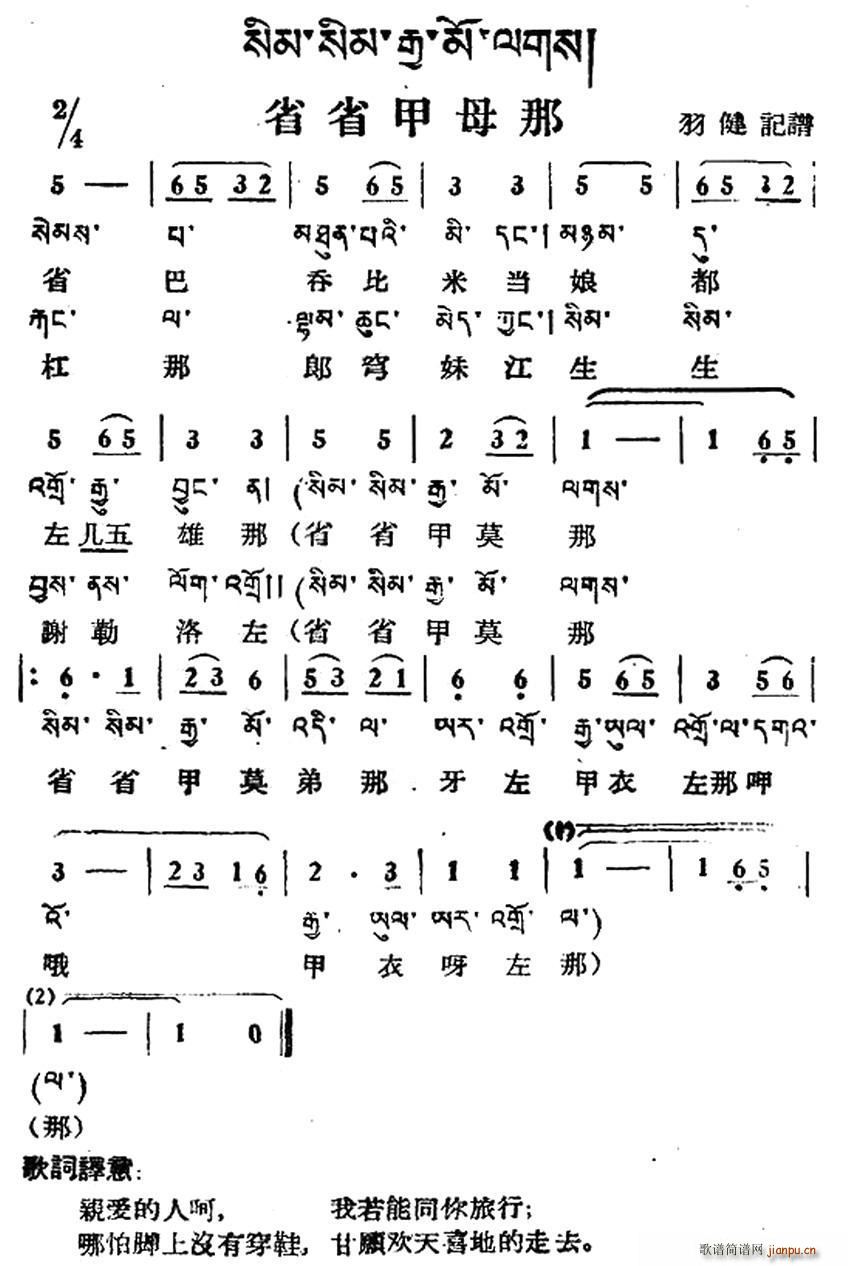 སིམ་སིམ་རྒྱ་མོ་ལགས།
省省甲母那
2/4
羽健記譜
5 — | 6 5 3 2 | 5 6 5 | 3 3 | 5 5 | 6 5 3 2 |
སེམས་ པ་ མཐུན་པའི་ མི་ དང་། མཉམ་ དུ་
省 巴 吞比 米 当 娘 都
རྐང་ ལ་ ལྷམ་ ཆུང་ མེད་ ཀྱང་། སིམ་ སིམ་
杠 那 郎穹 妹江生 生
5 6 5 | 3 3 | 5 5 | 2 3 2 | 1 — | 1 6 5 |
འགྲོ་ རྒྱུ་ བྱུང་ ན། (སིམ་ སིམ་ རྒྱ་ མོ་ ལགས་
左儿五 雄那(省省甲莫 那
བྱས་ ནས་ ལོག་ འགྲོ།། (སིམ་ སིམ་ རྒྱ་ མོ་ ལགས་
謝勒 洛左(省省甲莫 那
|: 6 · 1 | 2 3 6 | 5 3 2 1 | 6 6 | 5 6 5 | 3 5 6 |
སིམ་ སིམ་ རྒྱ་ མོ་ འདི་ ལ་ ཨར་ འགྲོ་ རྒྱ་ ཡུལ་ འགྲོ་ ལ་ དགའ་
省省 甲莫弟那 牙左 甲衣 左那呷
(1)
3 — | 2 3 1 6 | 2 · 3 | 1 1 | 1 — | 1 6 5 |
འོ་ རྒྱ་ ཡུལ་ ཨར་ འགྲོ་ ལ་)
哦 甲 衣呀左 那)
(2)
| 1 — | 1 0 ||
(ལ་)
(那)
歌詞譯意:
親爱的人呵, 我若能同你旅行;
哪怕脚上沒有穿鞋, 甘願欢天喜地的走去。
歌谱简谱网
jianpu.cn